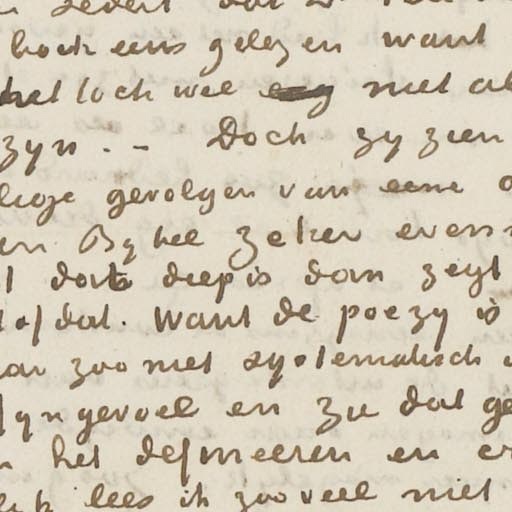 boek eens gelezen want
het toch wel niet al
zyn. - Doch zy zien
gevolgen van eene
en By hel zeker evens
dat diep is dan zegt
dat. Want de poezy is
zoo niet systematisch
fyngevoel en zie dat ge
het desmeeren en er
lees ik zoo veel niet